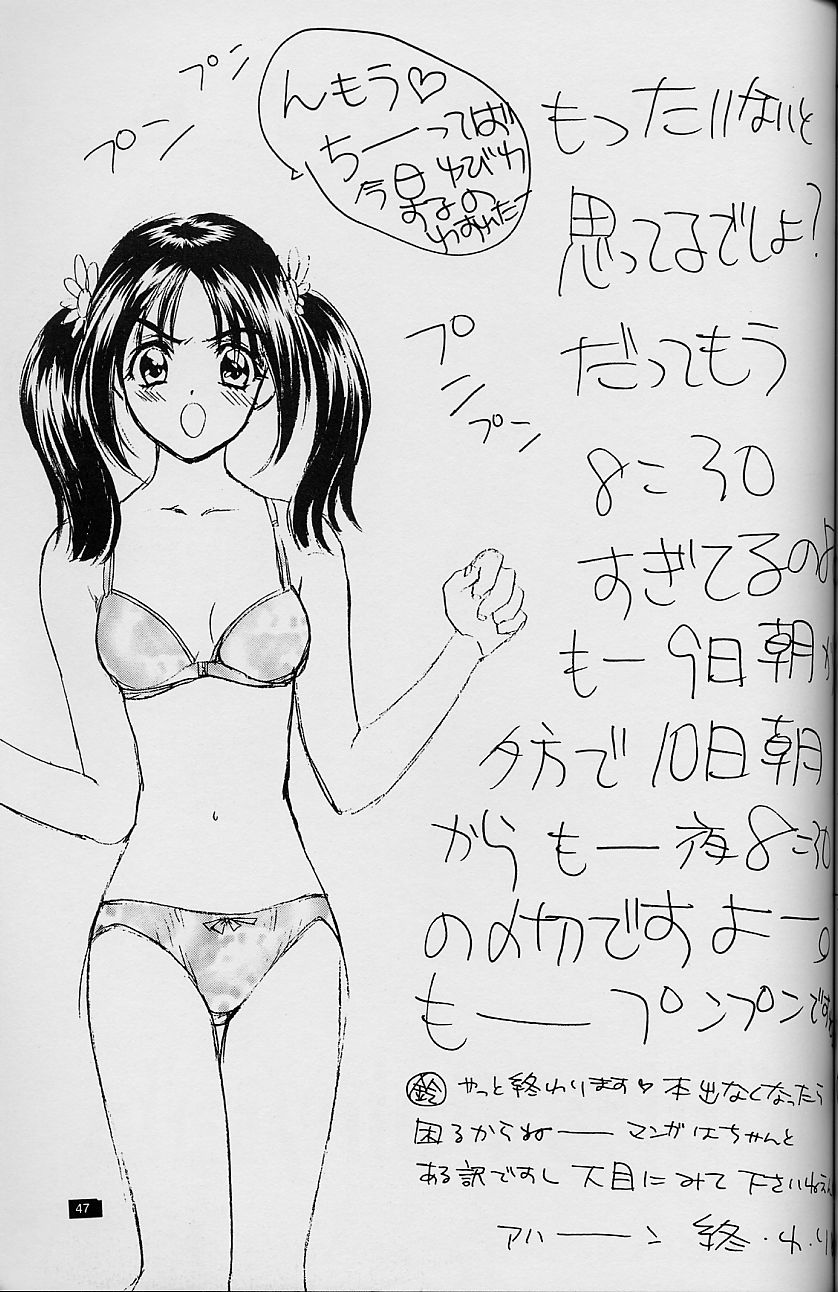 プン
プン
んもう♡
ちーってば
今日ゆびわ
するの
わすれたー
プ
ン
プン
もったいないと
思ってるでしょ?
だってもう
8:30
すぎてるのよ
もー9日朝か
夕方で10日朝
からもー夜8:30
の〆切ですよー。
もープンプンです
鈴 やっと終わります♡ 本出なくなったら
困るからねー マンガはちゃんと
ある訳ですし 大目にみて下さいねえ
アハーン 終・わ・り
47